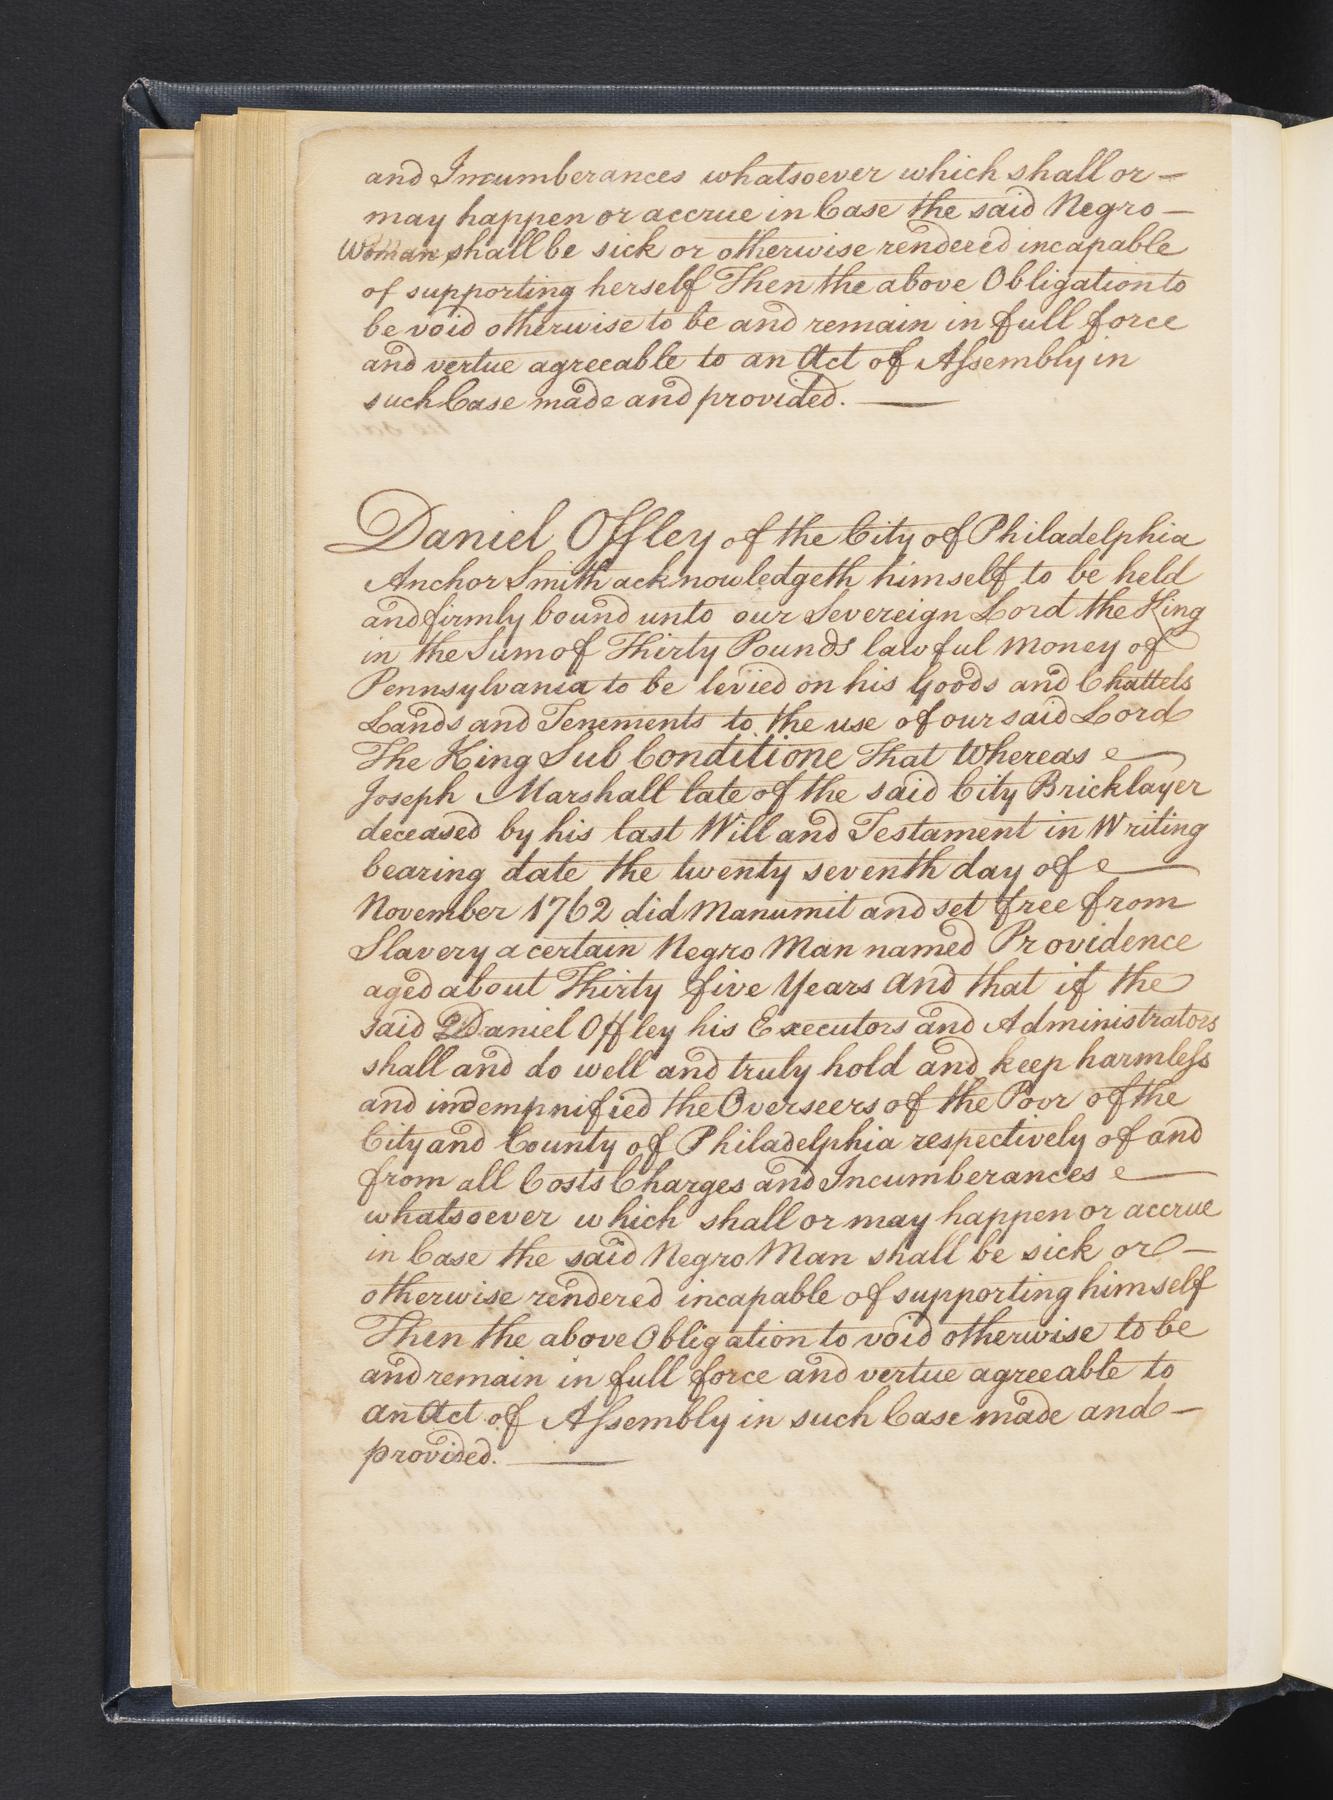 and Incumberances whatsoever which shall or –
may happen or accrue in Case the said Negro –
Woman shall be sick or otherwise rendered incapable
of supporting herself Then the above Obligation to
be void otherwise to be and remain in full force
and vertue agreeable to an Act of Assembly in
such Case made and provided. —
Daniel Offley of the City of Philadelphia
Anchor Smith acknowledgeth himself to be held
and firmly bound unto our Severeign Lord the King
in the Sum of Thirty Pounds lawful Money of
Pennsylvania to be levied on his Goods and Chattels
Lands and Tenements to the use of our said Lord
The King Sub Conditione That Whereas —
Joseph Marshall late of the said City Bricklayer
deceased by his last Will and Testament in Writing
bearing date the twenty seventh day of —
November 1762 did Manumit and set free from
Slavery a certain Negro Man named Providence
aged about Thirty five Years And that if the
said Daniel Offley his Executors and Administrators
shall and do well and truly hold and keep harmless
and indempnified the Overseers of the Poor of the
City and County of Philadelphia respectively of and
from all Costs Charges and Incumberances —
whatsoever which shall or may happen or accrue
in Case the said Negro Man shall be sick or –
otherwise rendered incapable of supporting himself
Then the above Obligation to void otherwise to be
and remain in full force and vertue agreeable to
an Act of Assembly in such Case made and –
provided. —